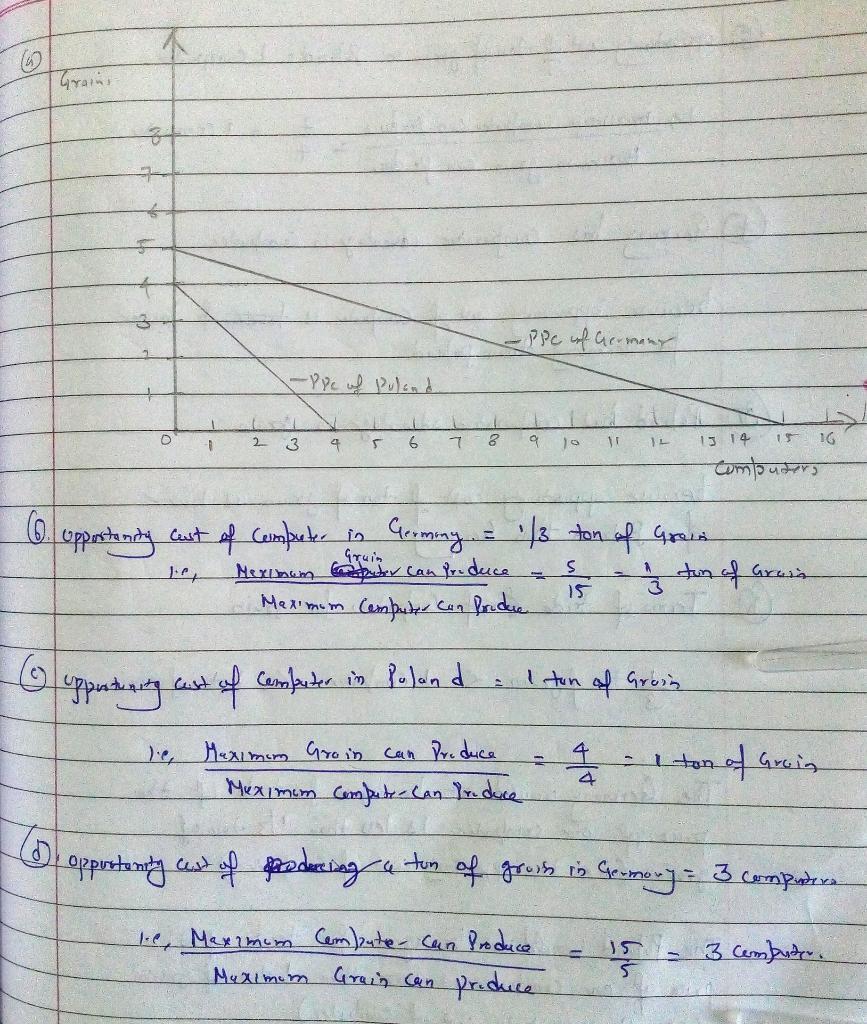 (a)
Grains
8
7
6
5
4
3
2
1
- PPC of Germany
- PPC of Poland
0 1 2 3 4 5 6 7 8 9 10 11 12 13 14 15 16
Computers
(b) opportunity cost of Computer in Germany = 1/3 ton of Grain
i.e, Maximum Grain can Produce = 5/15 = 1/3 ton of Grain
Maximum Computer can Produce
(c) opportunity cost of Computer in Poland = 1 ton of Grain
i.e, Maximum Grain can Produce = 4/4 = 1 ton of Grain
Maximum Computer can Produce
(d) opportunity cost of producing a ton of grain in Germany = 3 computers
i.e, Maximum Computer can Produce = 15/5 = 3 Computer.
Maximum Grain can produce